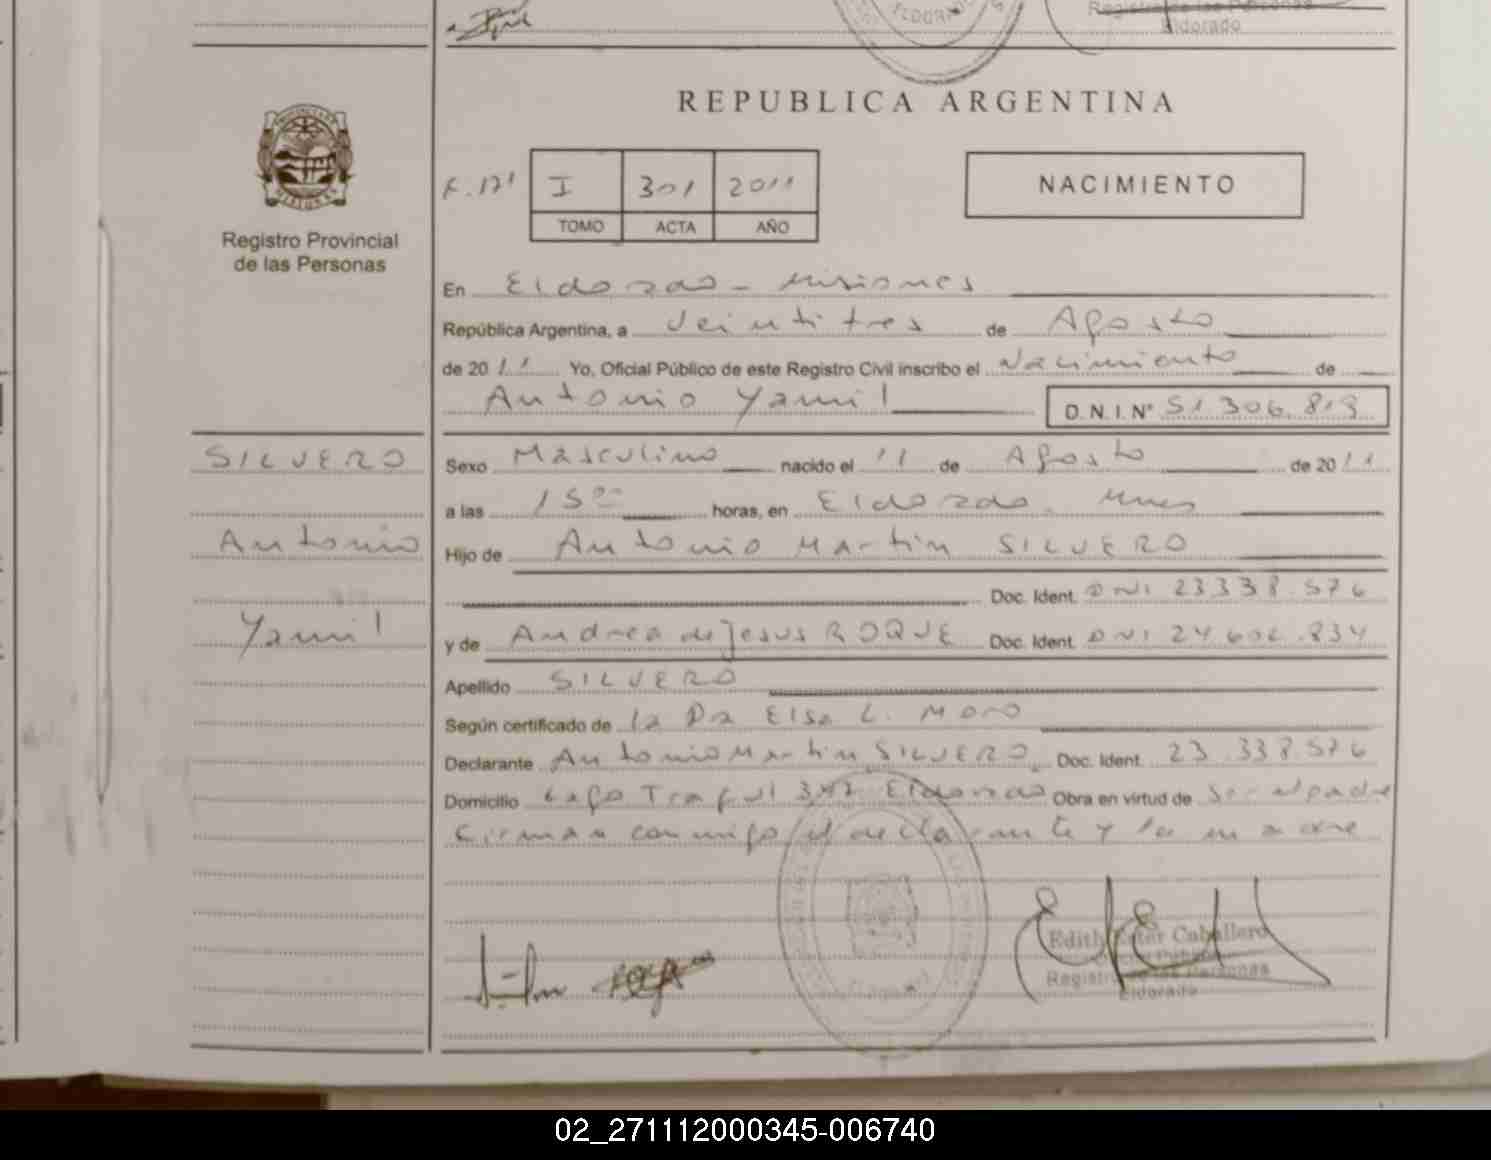 ELDORADO
Registro de las Personas
Eldorado
REPUBLICA ARGENTINA
Registro Provincial
de las Personas
F. 171 I 301 2011
TOMO ACTA AÑO
NACIMIENTO
En Eldorado - Misiones
República Argentina, a Veintitres de Agosto
de 2011 Yo, Oficial Público de este Registro Civil inscribo el Nacimiento de
Antonio Yamil D.N.I.N° 51.306.819
SILVERO
Antonio
Yamil
Sexo Masculino nacido el 11 de Agosto de 2011
a las 15 00 horas, en Eldorado. Mnes
Hijo de Antonio Martin SILVERO
Doc. Ident. DNI 23.338.576
y de Andrea de Jesus ROQUE Doc. Ident. DNI 24.602.834
Apellido SILVERO
Según certificado de la Dra Elsa L. Moro
Declarante Antonio Martin SILVERO Doc. Ident. 23.338.576
Domicilio Lago Traful Eldorado Obra en virtud de Ser el padre
Firman conmigo el declarante y la madre
Edith Ester Caballero
Oficial Público
Registro de las Personas
Eldorado
02_271112000345-006740